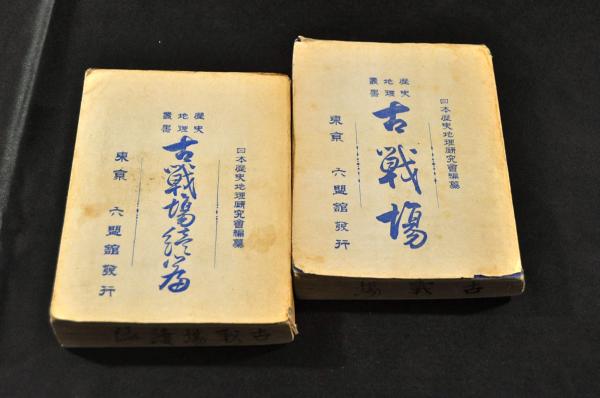 日本歴史地理研究會編纂
歴史
地理
叢書
古戦場
東京 六盟舘發行
古戦場
日本歴史地理研究會編纂
歴史
地理
叢書
古戦場續篇
東京 六盟舘發行
古戦場續